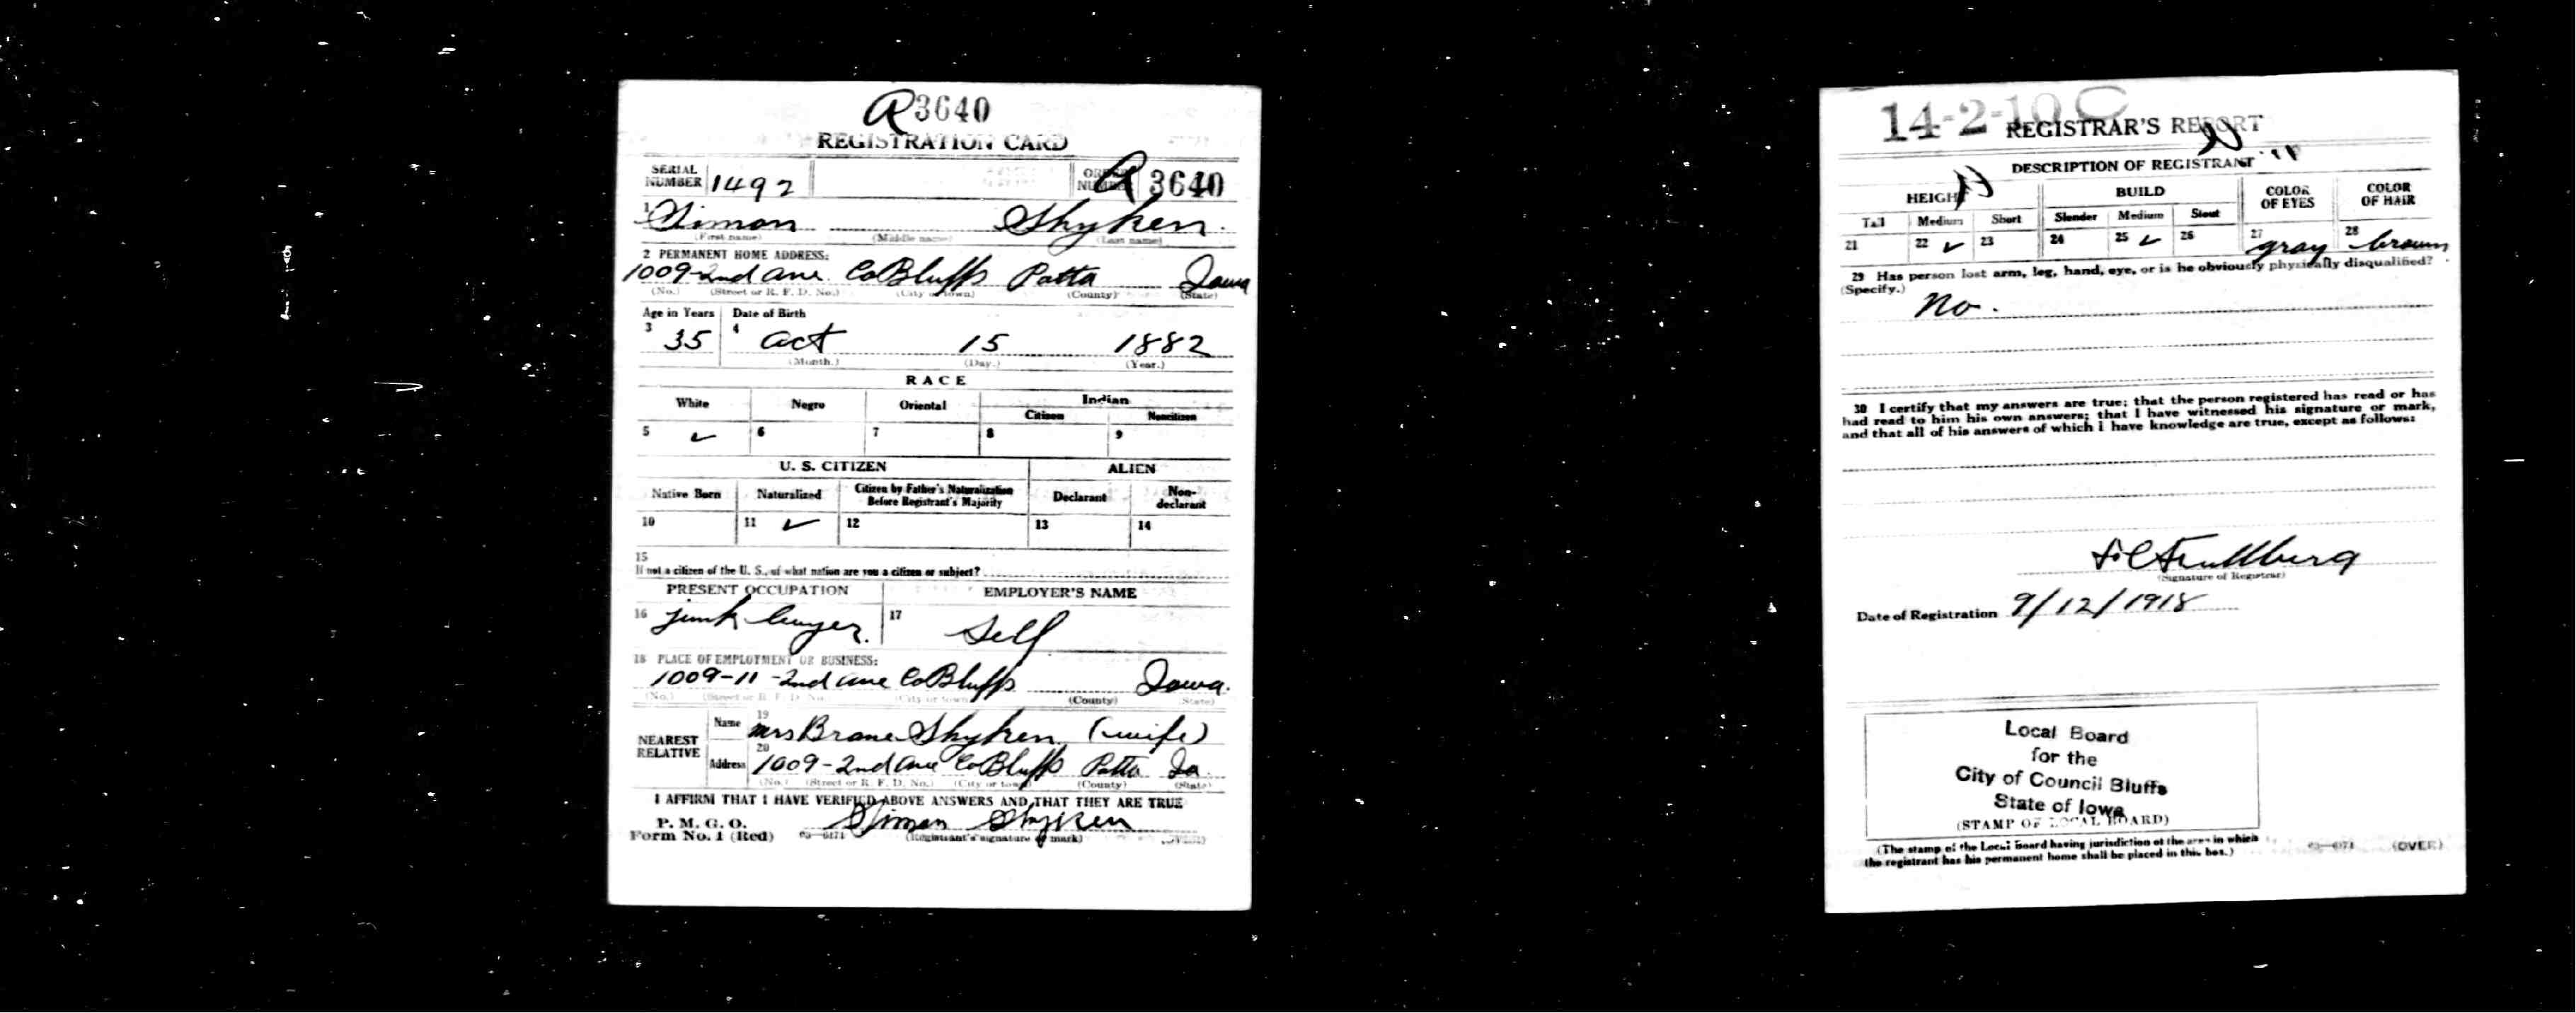 A3640
REGISTRATION CARD
SERIAL NUMBER 1492 ORDER NUMBER A 3640
1 Simon Shyken
(First name) (Middle name) (Last name)
2 PERMANENT HOME ADDRESS:
1009-2nd ave. CoBluffs Potta Iowa
(No.) (Street or R. F. D. No.) (City or town) (County) (State)
Age in Years Date of Birth
3 35 4 Oct 15 1882
(Month.) (Day.) (Year.)
RACE
White Negro Oriental Indian
Citizen Noncitizen
5 ✓ 6 7 8 9
U. S. CITIZEN ALIEN
Native Born Naturalized Citizen by Father's Naturalization Before Registrant's Majority Declarant Non-declarant
10 11 ✓ 12 13 14
15
If not a citizen of the U. S., of what nation are you a citizen or subject?
PRESENT OCCUPATION EMPLOYER'S NAME
16 junk buyer. 17 Self
18 PLACE OF EMPLOYMENT OR BUSINESS:
1009-11-2nd ave CoBluffs Iowa.
(No.) (Street or R. F. D. No.) (City or town) (County) (State)
NEAREST RELATIVE Name 19 Mrs Brane Shyken (wife)
Address 20 1009-2nd ave CoBluffs Potta Ia.
(No.) (Street or R. F. D. No.) (City or town) (County) (State)
I AFFIRM THAT I HAVE VERIFIED ABOVE ANSWERS AND THAT THEY ARE TRUE
P. M. G. O.
Form No. 1 (Red) 03—6171 Simon Shyken
(Registrant's signature or mark) (OVER)
14-2-10 C
REGISTRAR'S REPORT
DESCRIPTION OF REGISTRANT
HEIGHT BUILD COLOR OF EYES COLOR OF HAIR
Tall Medium Short Slender Medium Stout
21 22 ✓ 23 24 25 ✓ 26 27 gray 28 brown
29 Has person lost arm, leg, hand, eye, or is he obviously physically disqualified?
(Specify.) No.
30 I certify that my answers are true; that the person registered has read or has
had read to him his own answers; that I have witnessed his signature or mark,
and that all of his answers of which I have knowledge are true, except as follows:
(Signature of Registrar)
Date of Registration 9/12/1918
Local Board
for the
City of Council Bluffs
State of Iowa
(STAMP OF LOCAL BOARD)
(The stamp of the Local Board having jurisdiction of the area in which
the registrant has his permanent home shall be placed in this box.)
03—6171 (OVER)